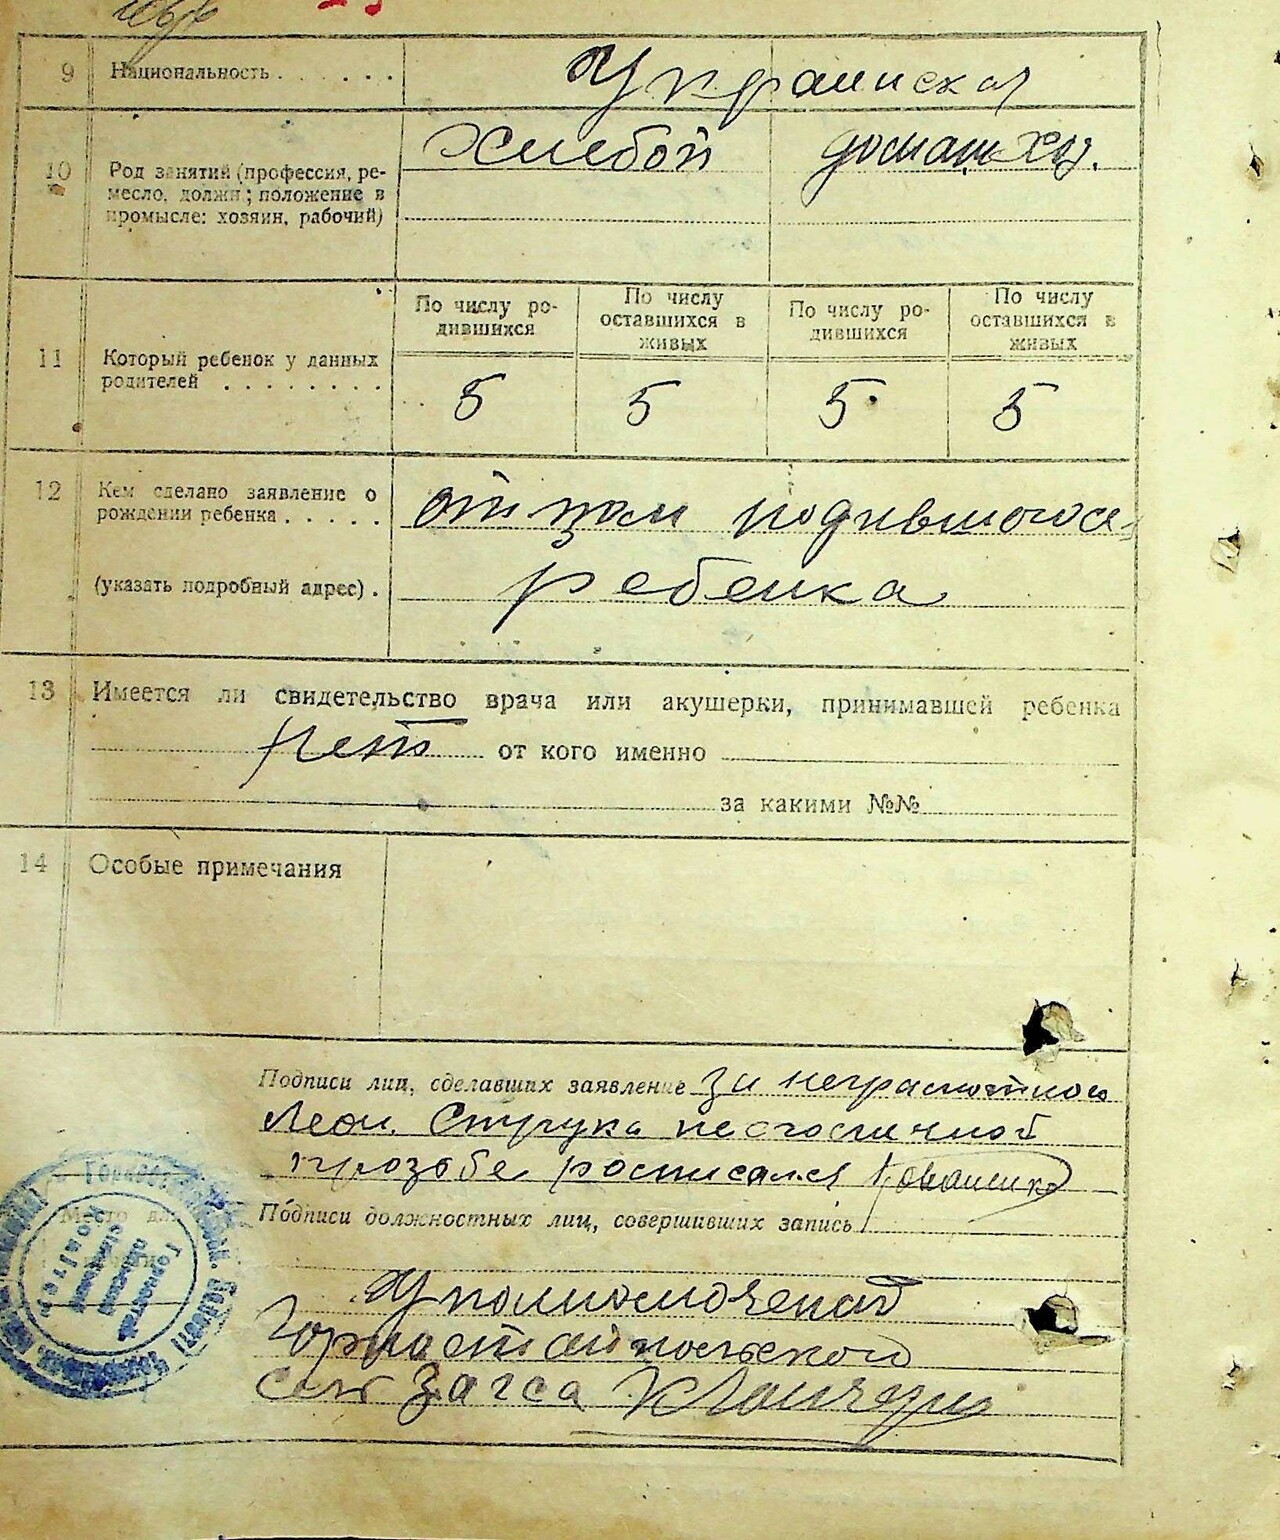 9 Национальность . . . . . . Украинская
10 Род занятий (профессия, ре-
месло, должн; положение в
промысле: хозяин, рабочий)
Хлебой домашхоз.
11 Который ребенок у данных
родителей . . . . . . . .
По числу ро-
дившихся
По числу
оставшихся в
живых
По числу ро-
дившихся
По числу
оставшихся в
живых
5 5 5 5
12 Кем сделано заявление о
рождении ребенка . . . . .
(указать подробный адрес) .
отцом родившогося
ребенка
13 Имеется ли свидетельство врача или акушерки, принимавшей ребенка
нет от кого именно
за какими №№
14 Особые примечания
Подписи лиц, сделавших заявление За неграмотного
Леон. Струка по его личной
прозбе росписался
Подписи должностных лиц, совершивших запись
Место для
Уполномоченой
Горностайпольского
сель Загса